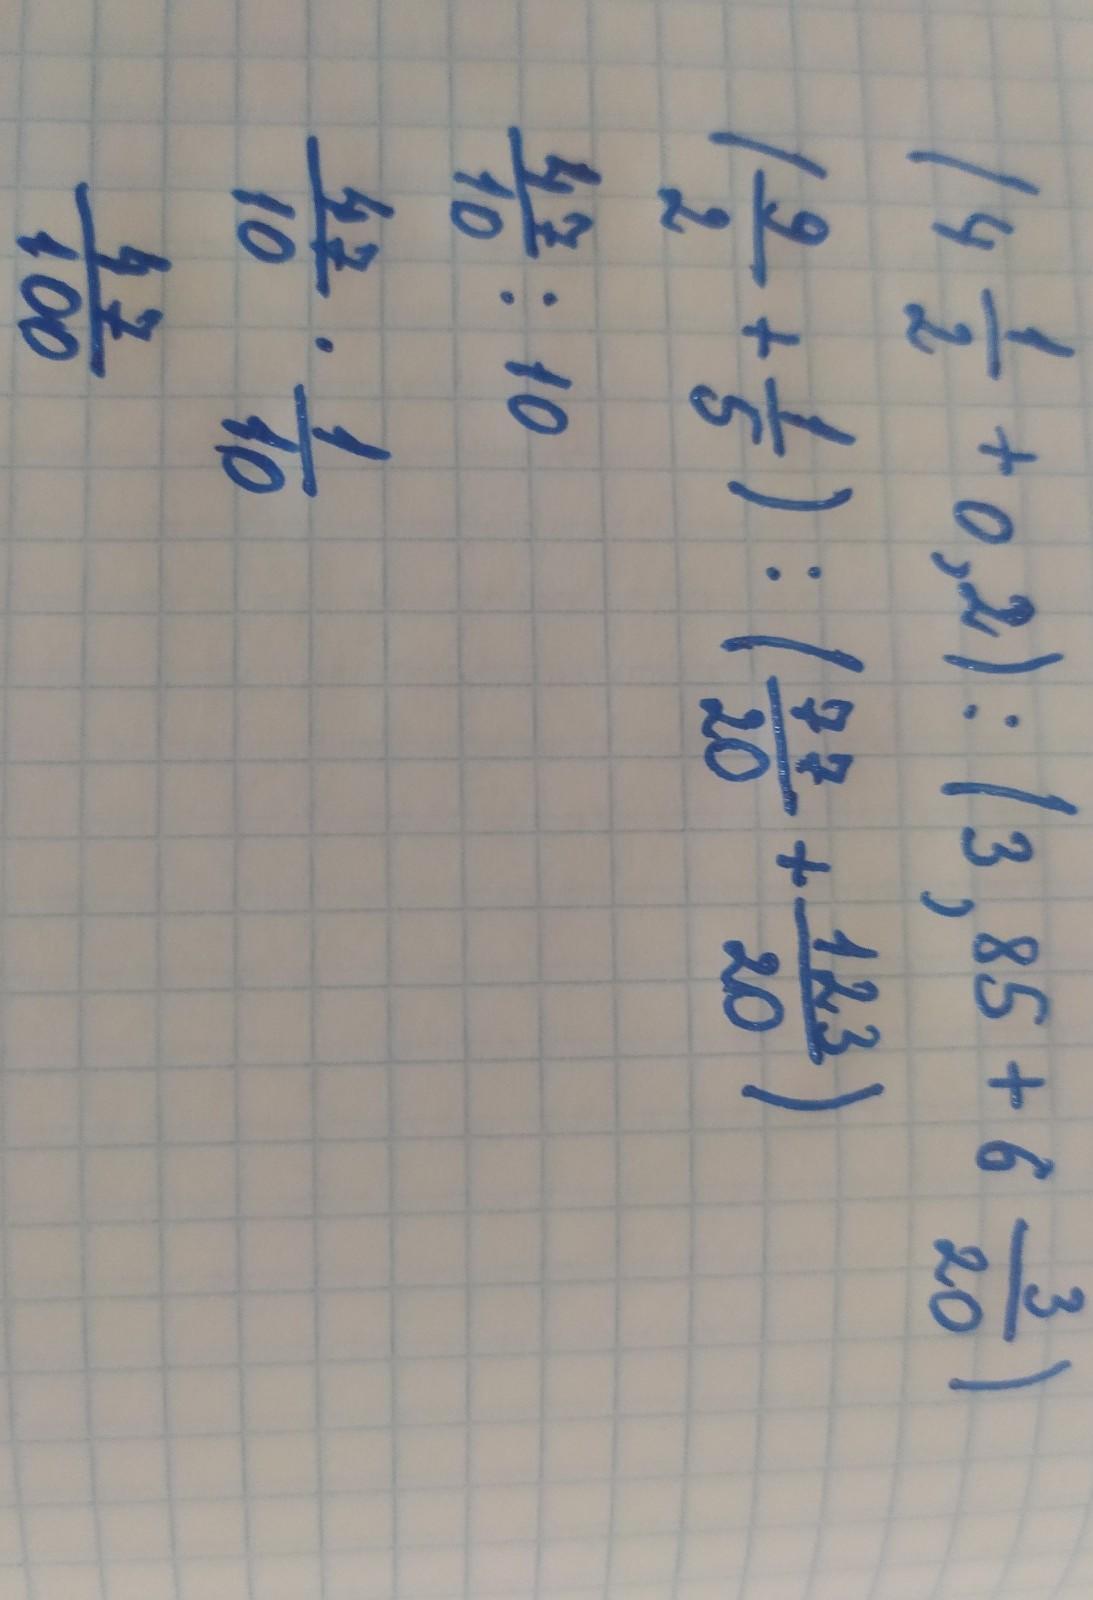 (4 1/2 + 0,2) : (3,85 + 6 3/20)
(9/2 + 1/5) : (77/20 + 123/20)
47/10 : 10
47/10 · 1/10
47/100